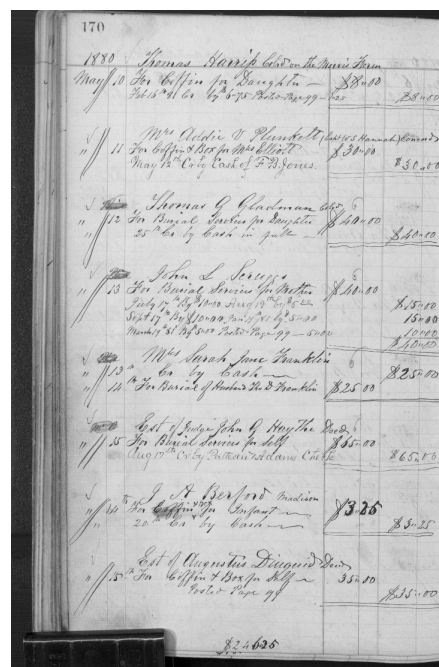 170
1880 Thomas Harris Col'd on the Morris Farm
May 10 For Coffin for Daughter $8.00
Feb 15th 81 Cr by 6.75 Posted Page 99 $8.00
Mrs Addie V Plunkett
" 11 For Coffin & Box for Mrs Elliott $30.00
May 12th Cr by Cash of F B Jones $30.00
Thomas G Gladman
" 12 For Burial Services for Daughter $40.00
25th Cr by Cash in full $40.00
John L Scruggs
" 13 For Burial Services for Mother $40.00
July 17th By $10.00 Aug 19th by $5.00 $15.00
Sept 17th By $10.00 by 5.00 15.00
March 19th 81 By 5.00 Posted Page 99 5.00 10.00
$40.00
Mrs Sarah Jane Franklin
" 13th Cr by Cash $25.00
" 14th For Burial of Husband Franklin $25.00
Est of Judge John G Haythe Decd
" 15 For Burial Services for Self $65.00
Aug 17th Cr by Putnam & Adams $65.00
J A Berford Madison
" 14th For Coffin for Infant $3.25
" 20th Cr by Cash $3.25
Est of Augustus Diuguid Decd
" 15th For Coffin & Box for Self 35.00
Posted Page 99 $35.00
$246.25